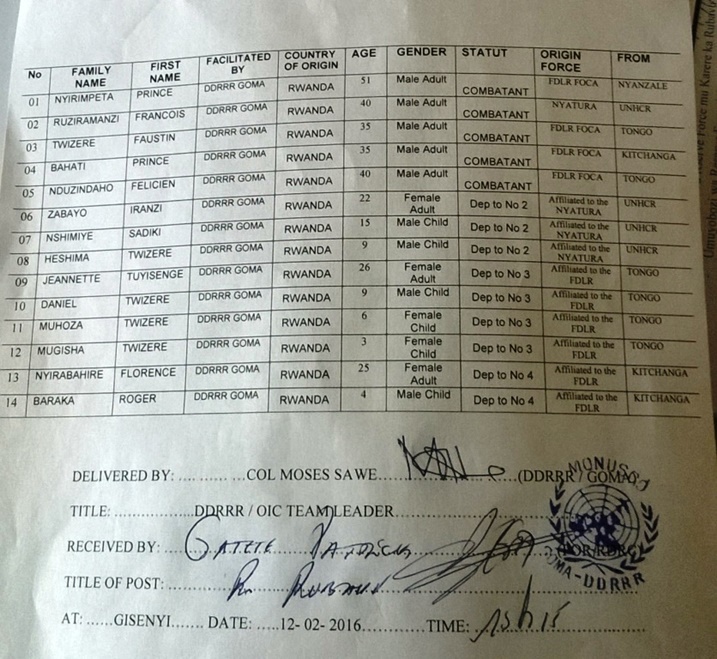 No FAMILY NAME FIRST NAME FACILITATED BY COUNTRY OF ORIGIN AGE GENDER STATUT ORIGIN FORCE FROM
01 NYIRIMPETA PRINCE DDRRR GOMA RWANDA 51 Male Adult COMBATANT FDLR FOCA NYANZALE
02 RUZIRAMANZI FRANCOIS DDRRR GOMA RWANDA 40 Male Adult COMBATANT NYATURA UNHCR
03 TWIZERE FAUSTIN DDRRR GOMA RWANDA 35 Male Adult COMBATANT FDLR FOCA TONGO
04 BAHATI PRINCE DDRRR GOMA RWANDA 35 Male Adult COMBATANT FDLR FOCA KITCHANGA
05 NDUZINDAHO FELICIEN DDRRR GOMA RWANDA 40 Male Adult COMBATANT FDLR FOCA TONGO
06 ZABAYO IRANZI DDRRR GOMA RWANDA 22 Female Adult Dep to No 2 Affiliated to the NYATURA UNHCR
07 NSHIMIYE SADIKI DDRRR GOMA RWANDA 15 Male Child Dep to No 2 Affiliated to the NYATURA UNHCR
08 HESHIMA TWIZERE DDRRR GOMA RWANDA 9 Male Child Dep to No 2 Affiliated to the NYATURA UNHCR
09 JEANNETTE TUYISENGE DDRRR GOMA RWANDA 26 Female Adult Dep to No 3 Affiliated to the FDLR TONGO
10 DANIEL TWIZERE DDRRR GOMA RWANDA 9 Male Child Dep to No 3 Affiliated to the FDLR TONGO
11 MUHOZA TWIZERE DDRRR GOMA RWANDA 6 Female Child Dep to No 3 Affiliated to the FDLR TONGO
12 MUGISHA TWIZERE DDRRR GOMA RWANDA 3 Female Child Dep to No 3 Affiliated to the FDLR TONGO
13 NYIRABAHIRE FLORENCE DDRRR GOMA RWANDA 25 Female Adult Dep to No 4 Affiliated to the FDLR KITCHANGA
14 BARAKA ROGER DDRRR GOMA RWANDA 4 Male Child Dep to No 4 Affiliated to the FDLR KITCHANGA
DELIVERED BY: ........ ...COL MOSES SAWE.... (DDRRR / GOMA)
TITLE: ..................DDRRR / OIC TEAM LEADER
RECEIVED BY: GATETE
TITLE OF POST:
AT: ......GISENYI ...... DATE: .....12- 02- 2016............. TIME: 15h15
MONUSCO
GOMA-DDRRR